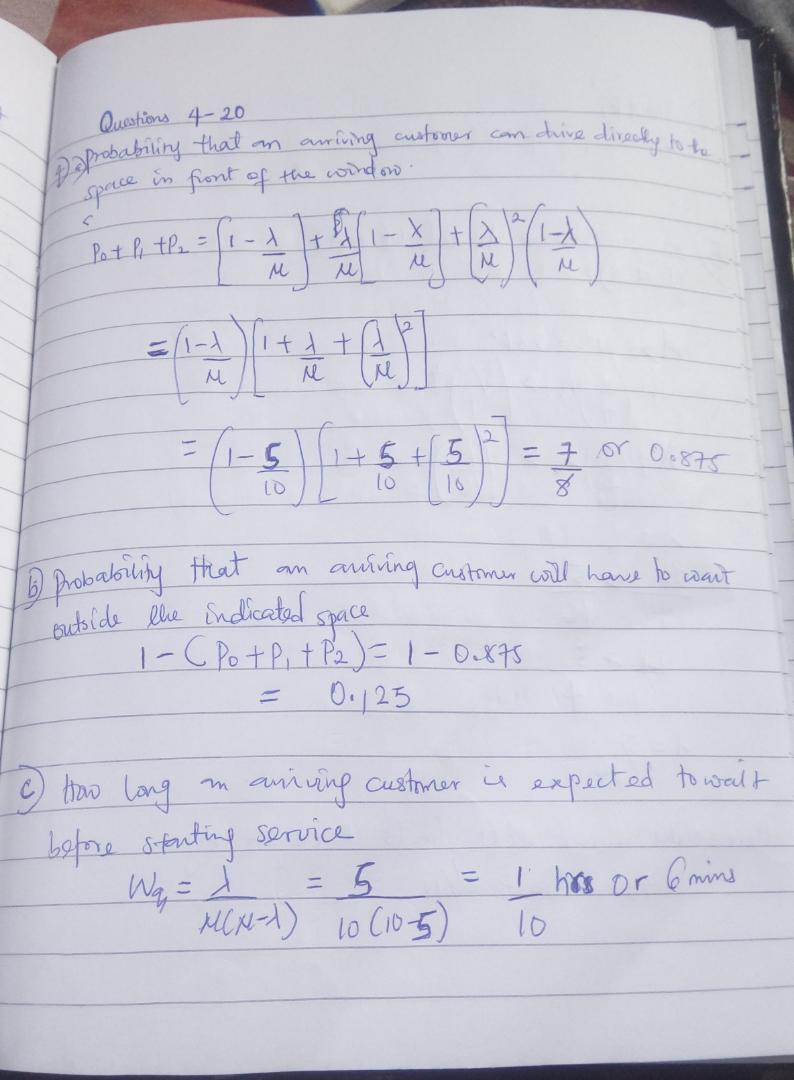 Questions 4-20
1) a) Probability that an arriving customer can drive directly to the
space in front of the window.
P₀ + P₁ + P₂ = [1 - λ/μ] + λ/μ [1 - λ/μ] + (λ/μ)² (1-λ/μ)
= (1-λ/μ) [1 + λ/μ + (λ/μ)²]
= (1 - 5/10) [1 + 5/10 + (5/10)²] = 7/8 or 0.875
b) Probability that an arriving customer will have to wait
outside the indicated space
1 - (P₀ + P₁ + P₂) = 1 - 0.875
= 0.125
c) How long an arriving customer is expected to wait
before starting service
Wq = λ/μ(μ-λ) = 5/10(10-5) = 1/10 hrs or 6 mins